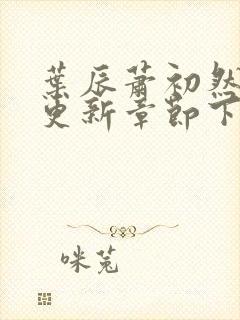 葉辰蕭初然
更新章節下
咪兔